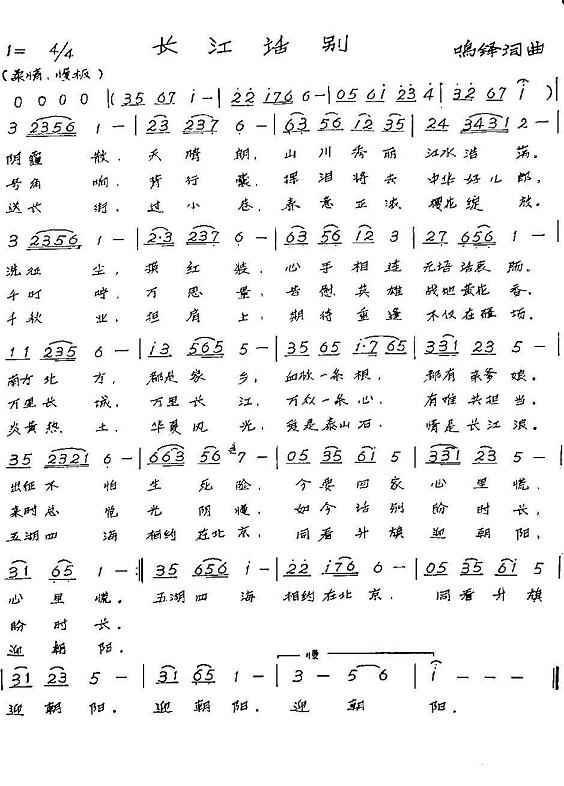 1= 4/4 长江话别 鸣铎词曲
(柔情、慢板)
0 0 0 0 | (35 67 i - | 22 i76 6 - | 05 61 23 4 | 32 67 i ) |
3 2356 1 - | 23 237 6 - | 63 56 12 35 | 24 3431 2 - |
阴霾散，天晴朗，山川秀丽江水浩荡。
号角响，背行囊，挥泪将去中华好儿郎，
送长街，过小巷，春意正浓樱花绽放。
3 2356 1 - | 2·3 2376 6 - | 63 56 12 3 | 27 656 1 - |
洗征尘，换红装，心手相连无语话衷肠。
千叮咛，万思量，告慰英雄战地黄花香。
千秋业，担肩上，期待重逢不仅在疆场。
1 1 235 6 - | i3 565 5 - | 35 65 i·7 65 | 331 23 5 - |
南方北方，都是家乡，血脉一条根，都有亲爹娘。
万里长城，万里长江，万众一条心，有难共担当。
炎黄热土，华夏风光，爱是泰山石，情是长江浪。
35 2321 6 - | 663 56 7 - | 05 35 61 5 | 331 23 5 - |
出征不怕生死险，今要回家心里慌，
来时总觉光阴慢，如今话别盼时长，
五湖四海相约在北京，同看升旗迎朝阳，
31 65 1 - :| 35 656 i - | 22 i76 6 - | 05 35 61 5 |
心里慌。五湖四海相约在北京，同看升旗
盼时长。
迎朝阳。
慢
31 23 5 - | 31 65 1 - | 3 - 5 6 | i - - - ||
迎朝阳。迎朝阳。迎朝阳。